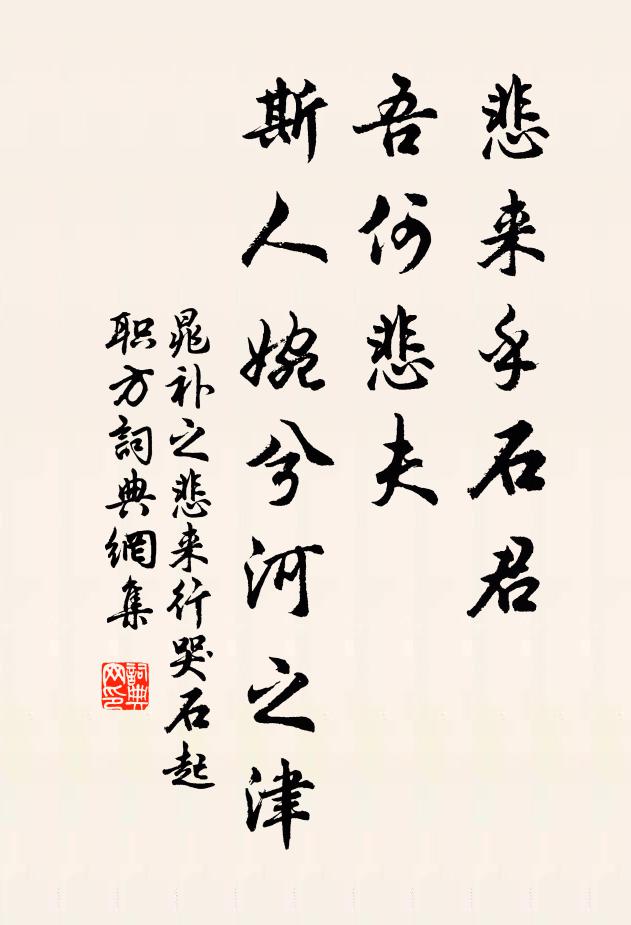 悲来乎石君
吾何悲夫
斯人婉兮河之津
晁补之悲来行哭石起
职方詞典網集
詞典
网印